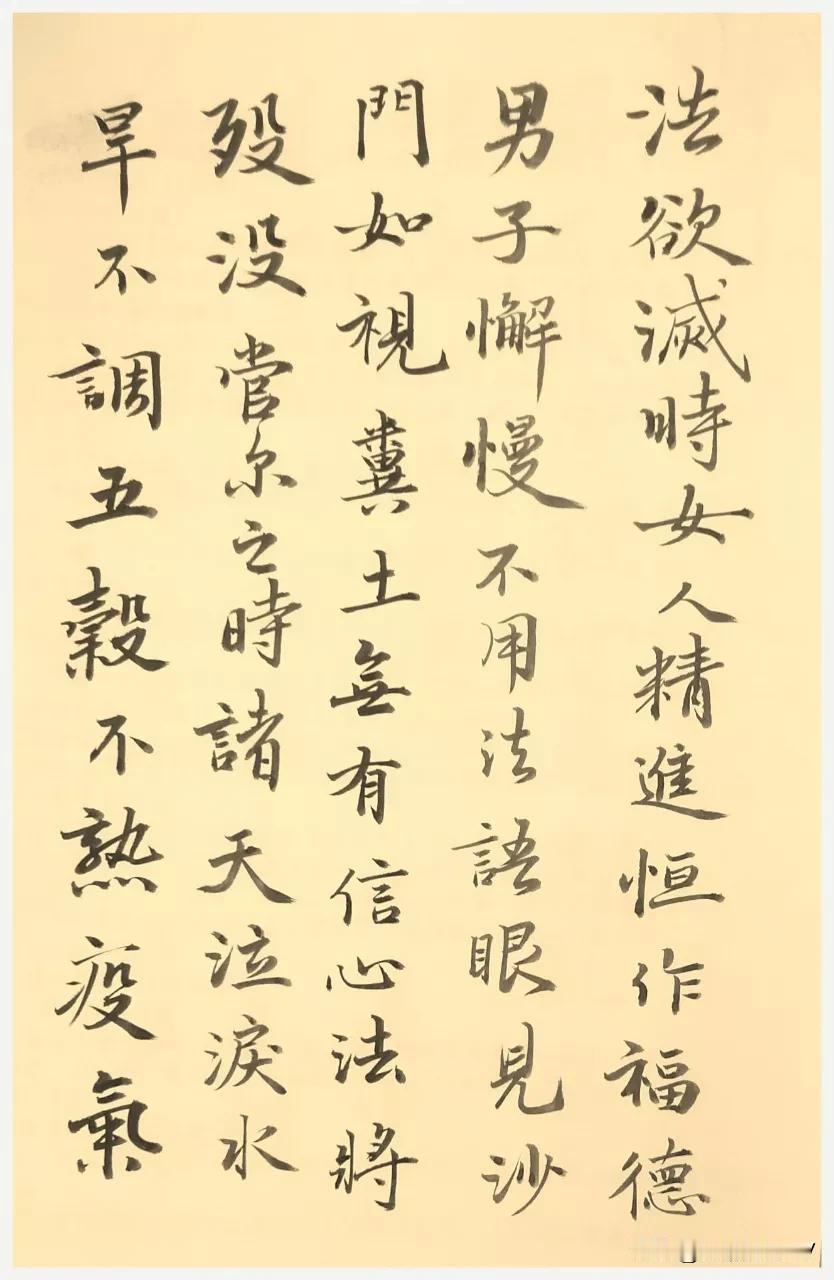 法欲滅時女人精進恒作福德
男子懈慢不用法語眼見沙
門如視糞土無有信心法將
殁没當尔之時諸天泣淚水
旱不調五穀不熟疫氣